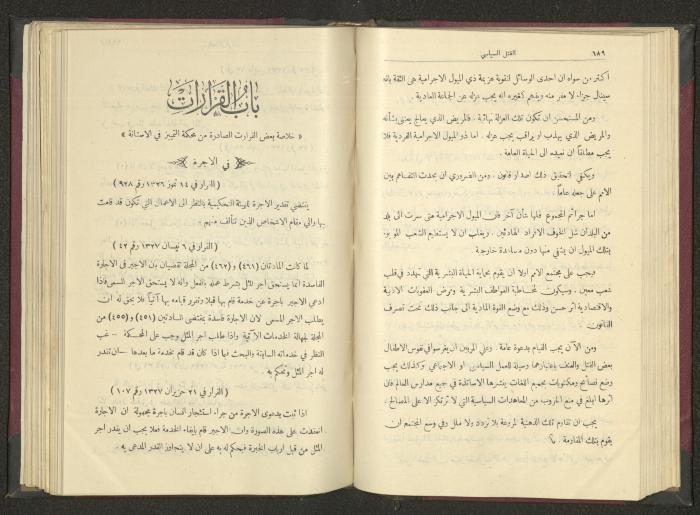 ٦٨٩
القتل السياسي
أكثر من سواه ان احدى الوسائل لتقوية هزيمة ذي الميول الاجرامية هي الثقة بانه
سينال جزاء لا مفر منه ويفهم كغيره انه يجب عزله عن الجماعة العادية.
ومن المستحسن ان تكون تلك العزلة نهائية. فالمريض الذي يعالج يعنى بشأنه
والمريض الذي يهذب او يراقب يجب عزله. اما ذو الميول الاجرامية الفردية فلا
يجب مطلقاً ان نعيده الى الحياة العامة.
ويكفي لتحقيق ذلك اصدار قانون. ومن الضروري ان يحدث التفاهم بين
الامم على جعله عاماً.
اما جرائم المجموع فلها شأن آخر فان الميول الاجرامية متى سرت الى بلد
من البلدان شل الخوف الافراد الهادئين. ويغلب ان لا يستطيع الشعب الموبوء
بتلك الميول ان يشفى منها دون مساعدة خارجية.
فيجب على مجتمع الامم اولا ان يقوم بحماية الحياة البشرية التي تهدد في قلب
شعب معين. وسيكون لمخاطبة العواطف البشرية وفرض العقوبات الادبية
والاقتصادية اثر حسن وذلك مع وضع القوة المادية الى جانب ذلك تحت تصرف
القانون.
ومن الآن يجب القيام بدعوة عامة. وعلى المربين ان يغرسوا في نفوس الاطفال
بغض القتل والعنف باعتبارهما وسيلة للعمل السياسي او الاجتماعي وكذلك يجب
وضع نصائح ومكتوبات بجميع اللغات ينشرها الاساتذة في جميع مدارس العالم فان
اثرها ابلغ في منع الحروب من المعاهدات السياسية التي لا ترتكز الا على المصالح.
يجب ان تقاوم تلك الذهنية المروعة بلا تردد ولا ملل وفي وسع المجتمع ان
يقوم بتلك المقاومة.
باب القرارات
« خلاصة بعض القرارات الصادرة من محكمة التمييز في الاستانة »
في الاجرة
(القرار في ١٤ تموز ١٣٢٦ رقم ٩٢٨)
يقتضي تقدير الاجرة للهيئة التحكيمية بالنظر الى الاعمال التي تكون قد قامت
بها والى مقام الاشخاص الذين تتألف منهم.
(القرار في ٦ نيسان ١٣٢٧ رقم ٤٢)
لما كانت المادتان (٤٦١) و(٤٦٢) من المجلة تقضيان بان الاجير في الاجارة
الفاسدة انما يستحق اجر المثل بشرط عمله بالفعل وانه لا يستحق الاجر المسمى فاذا
ادعى الاجير باجرة عن خدمة قام بها قبلا وتقرر قيامه بها آتياً فلا يحق له ان
يطالب الاجر المسمى لان الاجارة فاسدة بمقتضى المادتين (٤٥١) و(٤٥٥) من
المجلة لجهالة الخدمات الآتية واذا طالب اجر المثل وجب على المحكمة – غب
النظر في خدماته السابقة والبحث فيما اذا كان قد قام بخدمة ما بعدها – ان تقدر
له اجر المثل وتحكم به.
(القرار في ٢١ حزيران ١٣٢٧ رقم ١٠٧)
اذا ثبت بدعوى الاجرة من جراء استئجار انسان باجرة مجهولة ان الاجارة
انعقدت على هذه الصورة وان الاجير قام بايفاء الخدمة فعلا يجب ان يقدر اجر
المثل من قبل ارباب الخبرة فيحكم له به على ان لا يتجاوز القدر المدعى به.